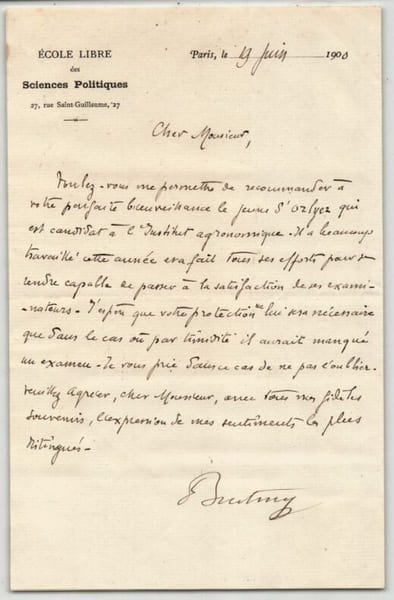 ÉCOLE LIBRE
des
Sciences Politiques
27, rue Saint-Guillaume, 27
Paris, le 19 Juin 1900
Cher Monsieur,
Voulez-vous me permettre de recommander à
votre parfaite bienveillance le jeune d'Orlyer qui
est candidat à l'Institut agronomique. Il a beaucoup
travaillé cette année et a fait tous ses efforts pour se
rendre capable de passer à la satisfaction de ses exami-
nateurs. J'espère que votre protection ne lui sera nécessaire
que dans le cas où par timidité il aurait manqué
un examen. Je vous prie dans ce cas de ne pas l'oublier.
Veuillez agréer, cher Monsieur, avec tous mes fidèles
souvenirs, l'expression de mes sentiments les plus
distingués.
E Boutmy